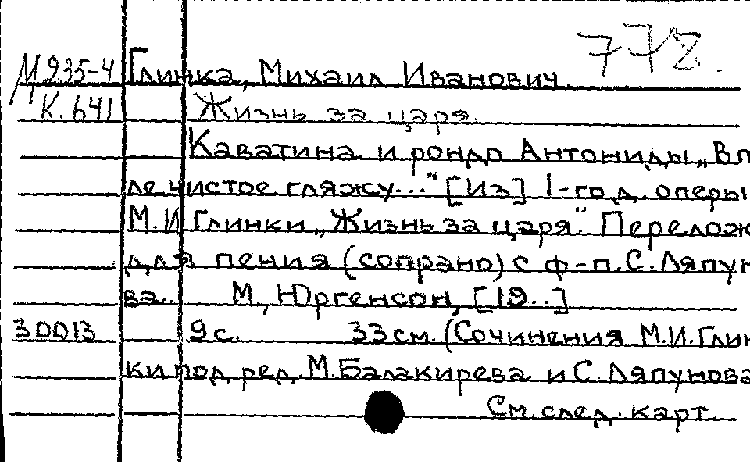 772.
М 935-4 Глинка, Михаил Иванович.
К. 641 Жизнь за царя.
Каватина и рондо Антониды „В по
ле чистое гляжу..." [Из] 1-го д. оперы
М.И. Глинки „Жизнь за царя". Перелож
для пения (сопрано) с ф-п. С. Ляпун
ва. М., Юргенсон, [19..]
30013 9 с. 33 см. (Сочинения М.И. Глин
ки под ред. М. Балакирева и С. Ляпунова
См. след. карт.